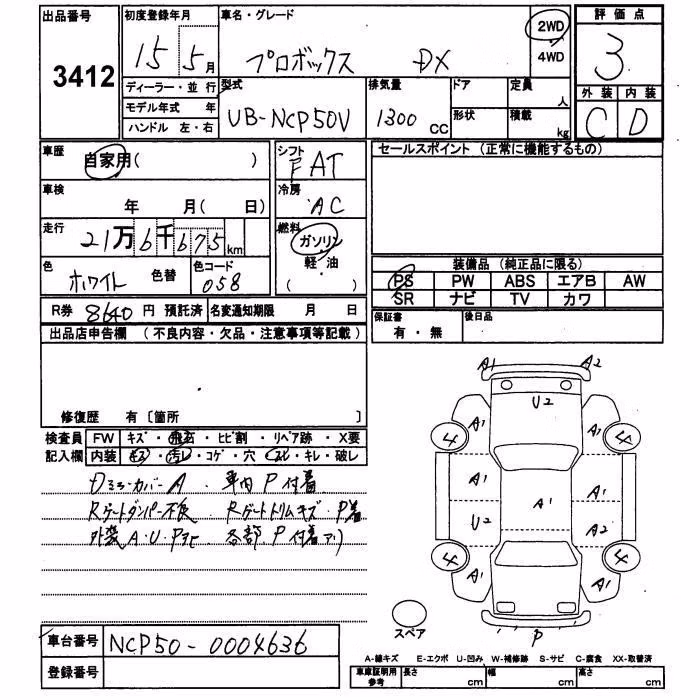 出品番号 初度登録年月 車名・グレード 評価点
3412 15 5月 プロボックス DX 2WD 4WD 3
ディーラー・並行 型式 排気量 ドア 定員 人 外装 内装
モデル年式 年 UB-NCP50V 1300 CC 形状 積載 kg C D
ハンドル 左・右
車歴 自家用( ) シフト FAT セールスポイント (正常に機能するもの)
車検 年 月( 日) 冷房 AC
走行 21万6千675km 燃料 ガソリン
軽/油
( )
色 ホワイト 色替 色コード 058 装備品 (純正品に限る)
PS PW ABS エアB AW
SR ナビ TV カワ
R券 8640 円 預託済 名変通知期限 月 日 保証書 有・無 後日品
出品店申告欄 (不良内容・欠品・注意事項等記載)
修復歴 有 〔箇所 〕
検査員 FW キズ・飛石・ヒビ割・リペア跡・X要
記入欄 内装 キズ・汚レ・コゲ・穴・スレ・キレ・破レ
Dミラーカバー A . 車内 P 付着
Rゲートダンパー不良 Rゲートトリムキズ・P着
外装 A・U・P 各部 P 付着アリ
A1 A2
U2
A1 A1
4 4
A1 A1 A1
U2 A2
4 4
A1 A1
P
スペア
車台番号 NCP50-0004636
登録番号
A-線キズ E-エクボ U-凹み W-補修跡 S-サビ C-腐食 XX-取替済
車庫証明用参考 長さ cm 幅 cm 高さ cm